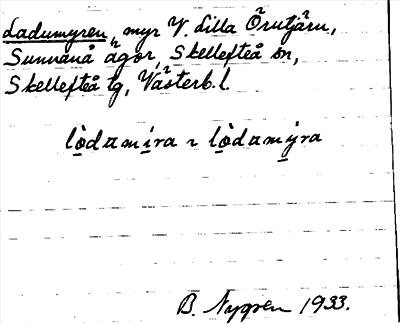 Ladumyren, myr V. Lilla Örutjärn,
Sunnanå ägor, Skellefteå sn,
Skellefteå tg, Västerb. l.
lòdamíra ~ lòdamýra
B. Nygren 1933.